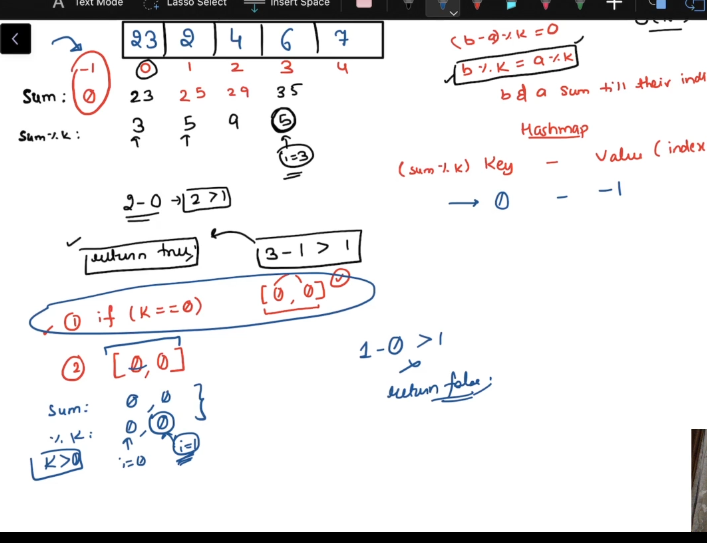 Text Mode Lasso Select Insert Space
23 2 4 6 7
-1 0 1 2 3 4
Sum: 0 23 25 29 35
Sum%K: 3 5 9 5
i=3
2-0 → 2 > 1
return true; 3-1 > 1
① if (K==0) [0,0]
② [0,0]
Sum: 0, 0
% K: 0, 0
K>0 i=0 i=1
(b-a)%K = 0
b%K = a%K
b & a sum till their
Hashmap
(sum%K) Key - Value (index
→ 0 - -1
1-0 > 1
return false;